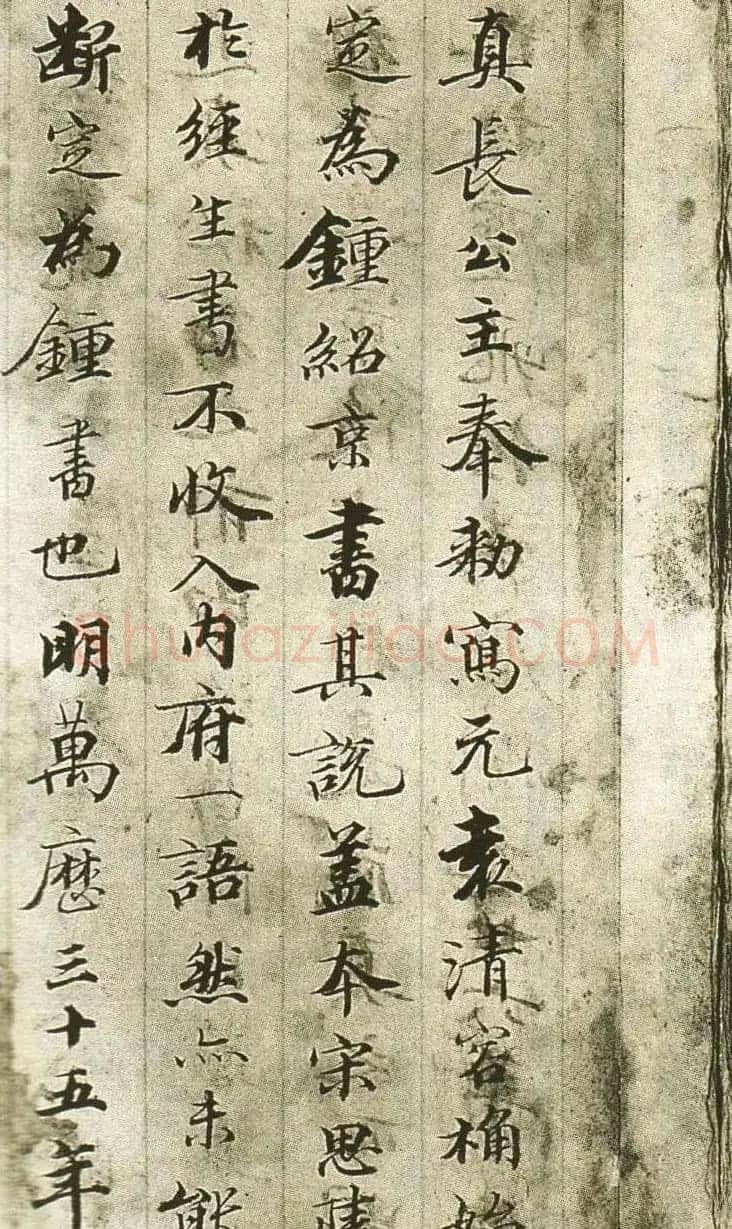 真長公主奉勑寫元袁清容桷始
定為鍾紹京書其說盖本宋思
於經生書不收入内府一語然亦未能
斷定為鍾書也明萬歷三十五年
ShufaZiliao.COM